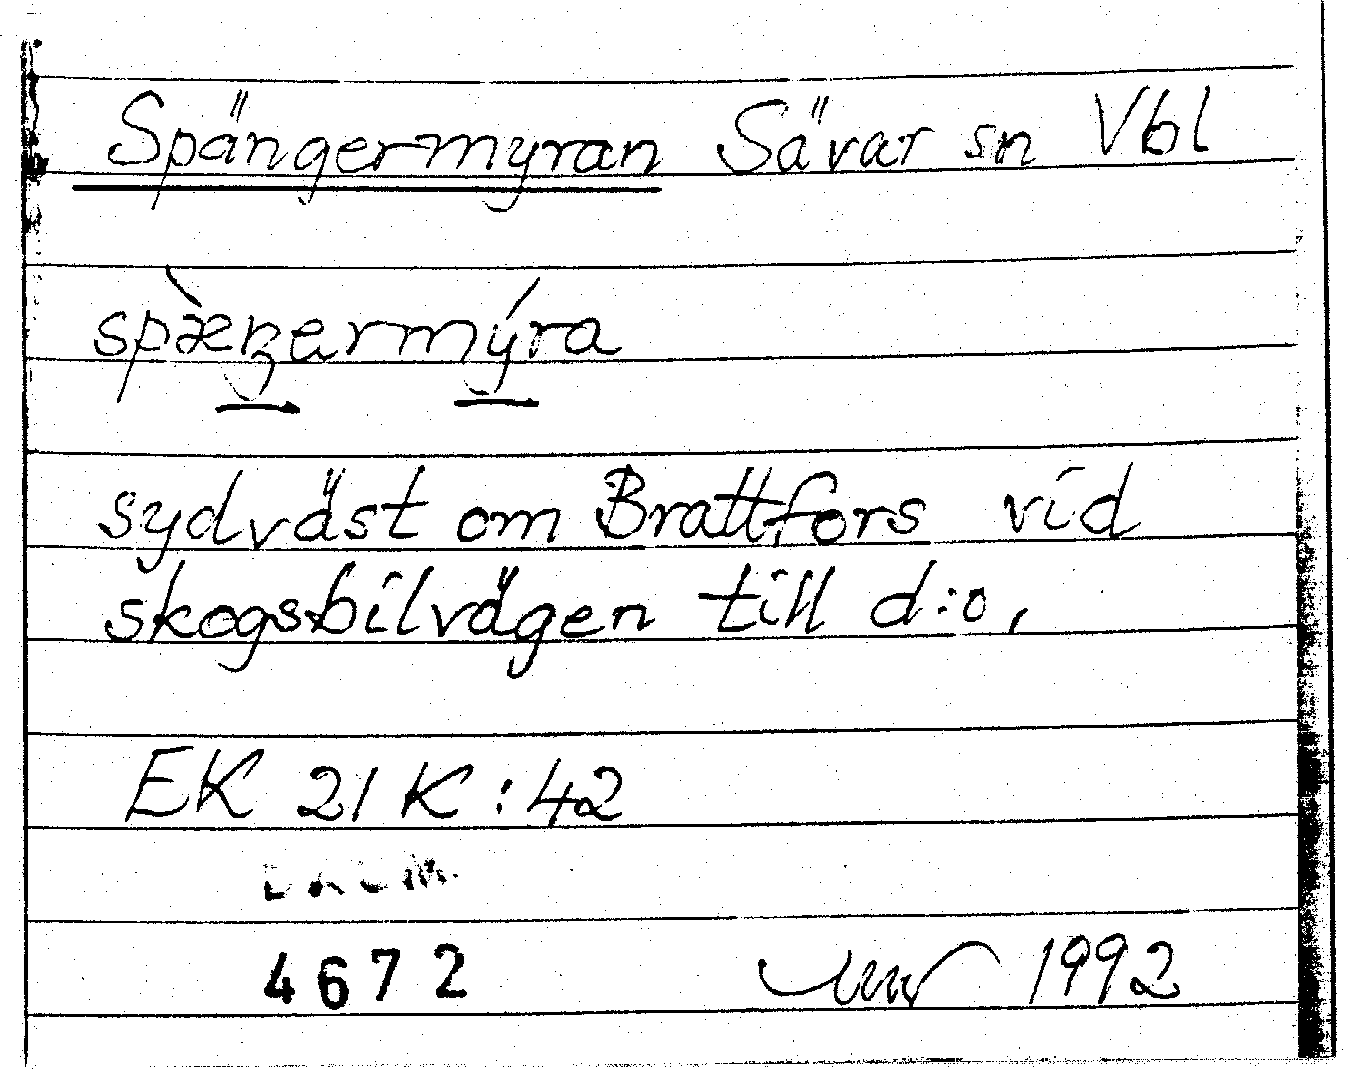 Spängermyran Sävar sn Vbl
spæ̀ŋermýra
sydväst om Brattfors vid
skogsbilvägen till d:o,
EK 21 K:42
4672 1992